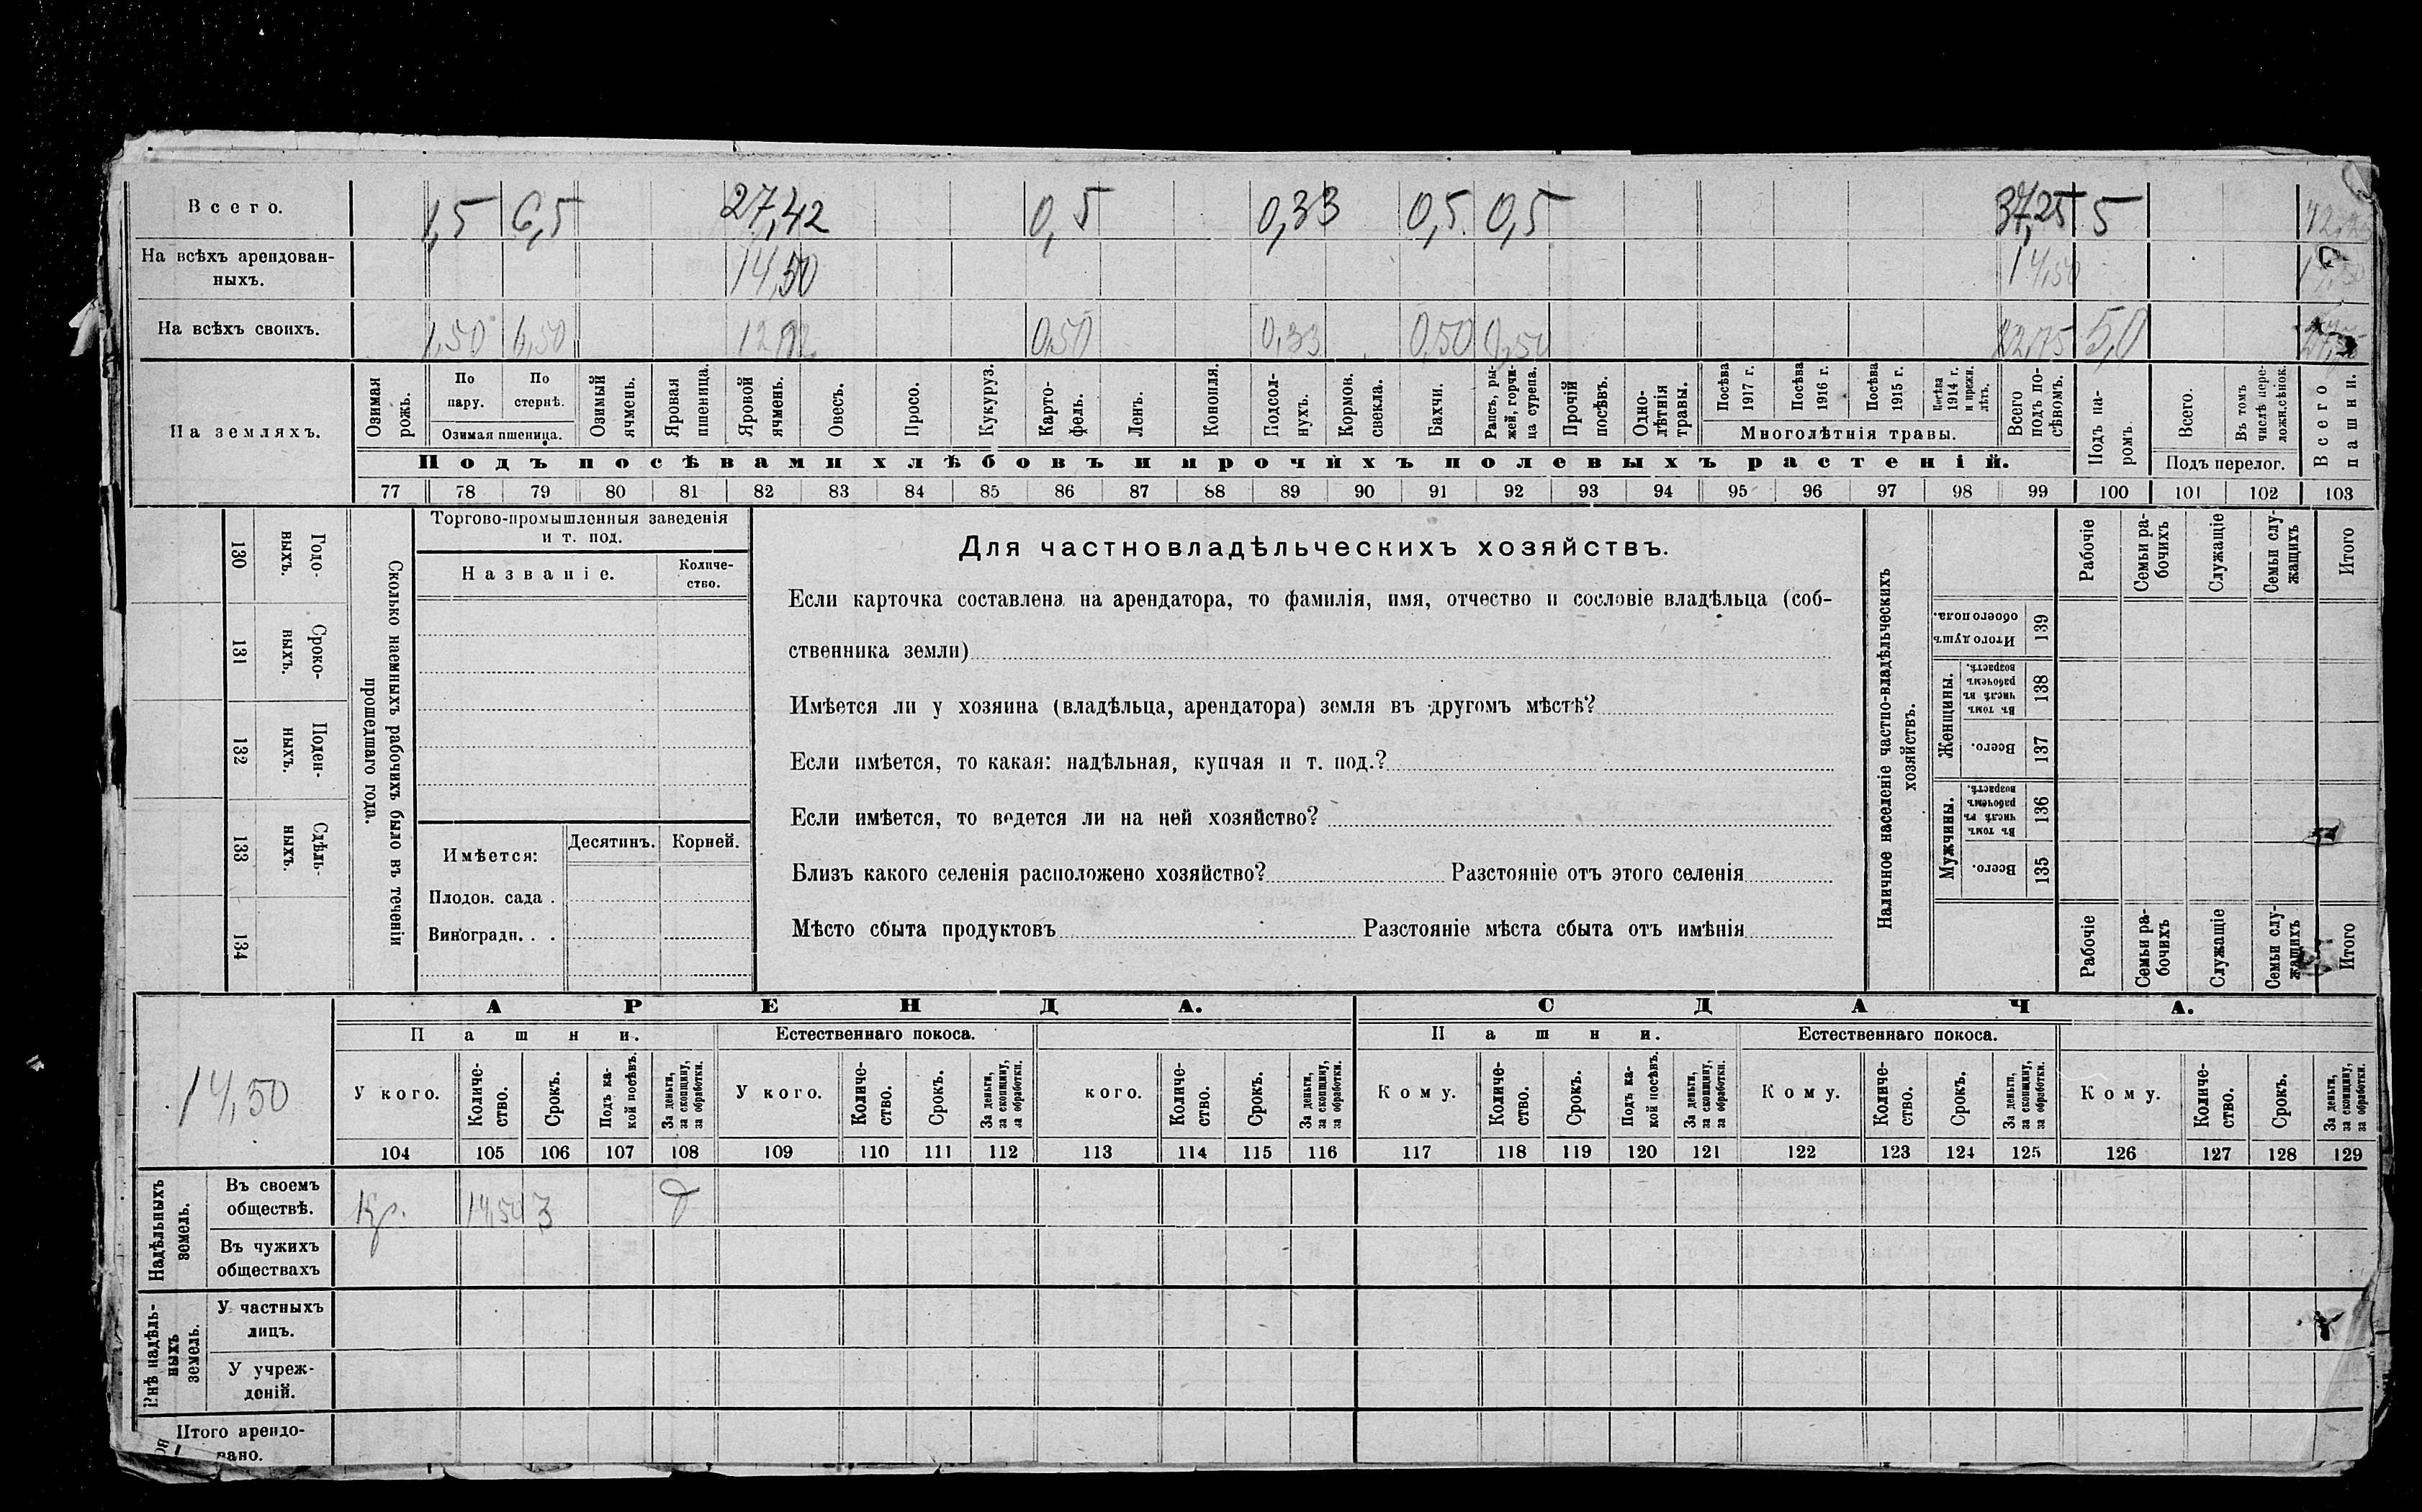 Всего. 1,5 6,5 27,42 0,5 0,33 0,5 0,5 37,25 5
На всѣхъ арендован-
ныхъ. 14,50 14,50
На всѣхъ своихъ. 1,50 6,50 0,50 0,33 0,50 0,50 22,75 5,0
На земляхъ.
Озимая рожь.
По пару.
По стернѣ.
Озимая пшеница.
Озимый ячмень.
Яровая пшеница.
Яровой ячмень.
Овесъ.
Просо.
Кукуруз.
Карто-
фель.
Ленъ.
Конопля.
Подсол-
нухъ.
Кормов. свекла.
Бахчи.
Рапсъ, ры-
жей, горчи-
ца сурепа.
Прочій посѣвъ.
Одно-
лѣтнія травы.
Посѣва 1917 г.
Посѣва 1916 г.
Посѣва 1915 г.
Посѣва 1914 г. и прежн. лѣтъ.
Многолѣтнія травы.
Всего подъ по-
сѣвомъ.
Подъ па-
ромъ.
Всего.
Въ томъ числѣ пере-
ложн.сѣнок.
Подъ перелог.
Всего пашни.
Подъ посѣвами хлѣбовъ и прочихъ полевыхъ растеній.
77 78 79 80 81 82 83 84 85 86 87 88 89 90 91 92 93 94 95 96 97 98 99 100 101 102 103
130 Годо-
выхъ.
131 Сроко-
выхъ.
132 Поден-
ныхъ.
133 Сдѣль-
ныхъ.
134
Сколько наемныхъ рабочихъ было въ теченіи
прошедшаго года.
Торгово-промышленныя заведенія
и т. под.
Названіе.
Количе-
ство.
Имѣется: Десятинъ. Корней.
Плодов. сада .
Виноградн. . .
Для частновладѣльческихъ хозяйствъ.
Если карточка составлена на арендатора, то фамилія, имя, отчество и сословіе владѣльца (соб-
ственника земли)
Имѣется ли у хозяина (владѣльца, арендатора) земля въ другомъ мѣстѣ?
Если имѣется, то какая: надѣльная, купчая и т. под.?
Если имѣется, то ведется ли на ней хозяйство?
Близъ какого селенія расположено хозяйство? Разстояніе отъ этого селенія
Мѣсто сбыта продуктовъ Разстояніе мѣста сбыта отъ имѣнія
Наличное населеніе частно-владѣльческихъ
хозяйствъ.
Рабочіе
Семьи ра-
бочихъ
Служащіе
Семьи слу-
жащихъ
Итого
Итого душъ обоего пола. 139
Женщины.
Въ томъ числѣ въ рабочемъ возрастѣ. 138
Всего. 137
Мужчины.
Въ томъ числѣ въ рабочемъ возрастѣ. 136
Всего. 135
Рабочіе
Семьи ра-
бочихъ
Служащіе
Семьи слу-
жащихъ
Итого
14,50
АРЕНДА. СДАЧА.
Пашни. Естественнаго покоса. Пашни. Естественнаго покоса.
У кого.
Количе-
ство.
Срокъ.
Подъ ка-
кой посѣвъ.
За деньги,
за скопщину,
за обработки.
У кого.
Количе-
ство.
Срокъ.
За деньги,
за скопщину,
за обработки.
кого.
Количе-
ство.
Срокъ.
За деньги,
за скопщину,
за обработки.
Кому.
Количе-
ство.
Срокъ.
Подъ ка-
кой посѣвъ.
За деньги,
за скопщину,
за обработки.
Кому.
Количе-
ство.
Срокъ.
За деньги,
за скопщину,
за обработки.
Кому.
Количе-
ство.
Срокъ.
За деньги,
за скопщину,
за обработки.
104 105 106 107 108 109 110 111 112 113 114 115 116 117 118 119 120 121 122 123 124 125 126 127 128 129
Надѣльныхъ
земель.
Въ своемъ
обществѣ. Кр. 14,50 3 д
Въ чужихъ
обществахъ
Внѣ надѣль-
ныхъ
земель.
У частныхъ
лицъ.
У учреж-
деній.
Итого арендо-
вано.